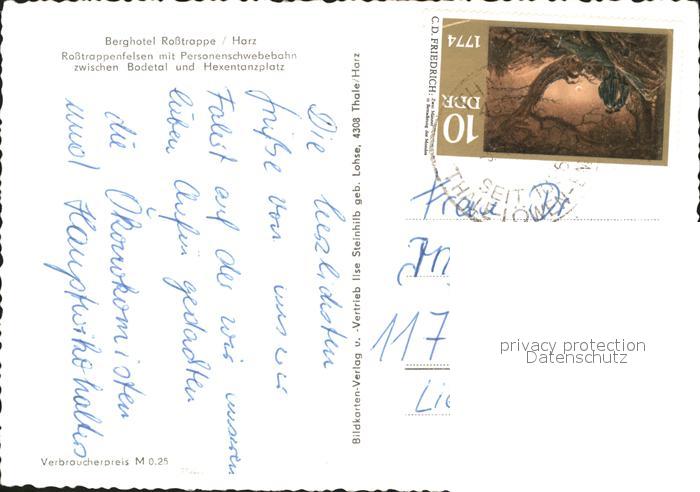 Berghotel Roßtrappe / Harz
Roßtrappenfelsen mit Personenschwebebahn
zwischen Bodetal und Hexentanzplatz
Die herzlichsten
Grüße von unserer
Fahrt auf der wir unseren
lieben Chefin gedachten
die Ökonomisten
und Haupt
Verbraucherpreis M 0.25
Bildkarten-Verlag u. -Vertrieb Ilse Steinhilb geb. Lohse, 4308 Thale/Harz
C.D. FRIEDRICH: Zwei Männer
in Betrachtung des Mondes
1774
DDR
10
SEIT
THALE
Frau Dr
117
Lie
privacy protection
Datenschutz